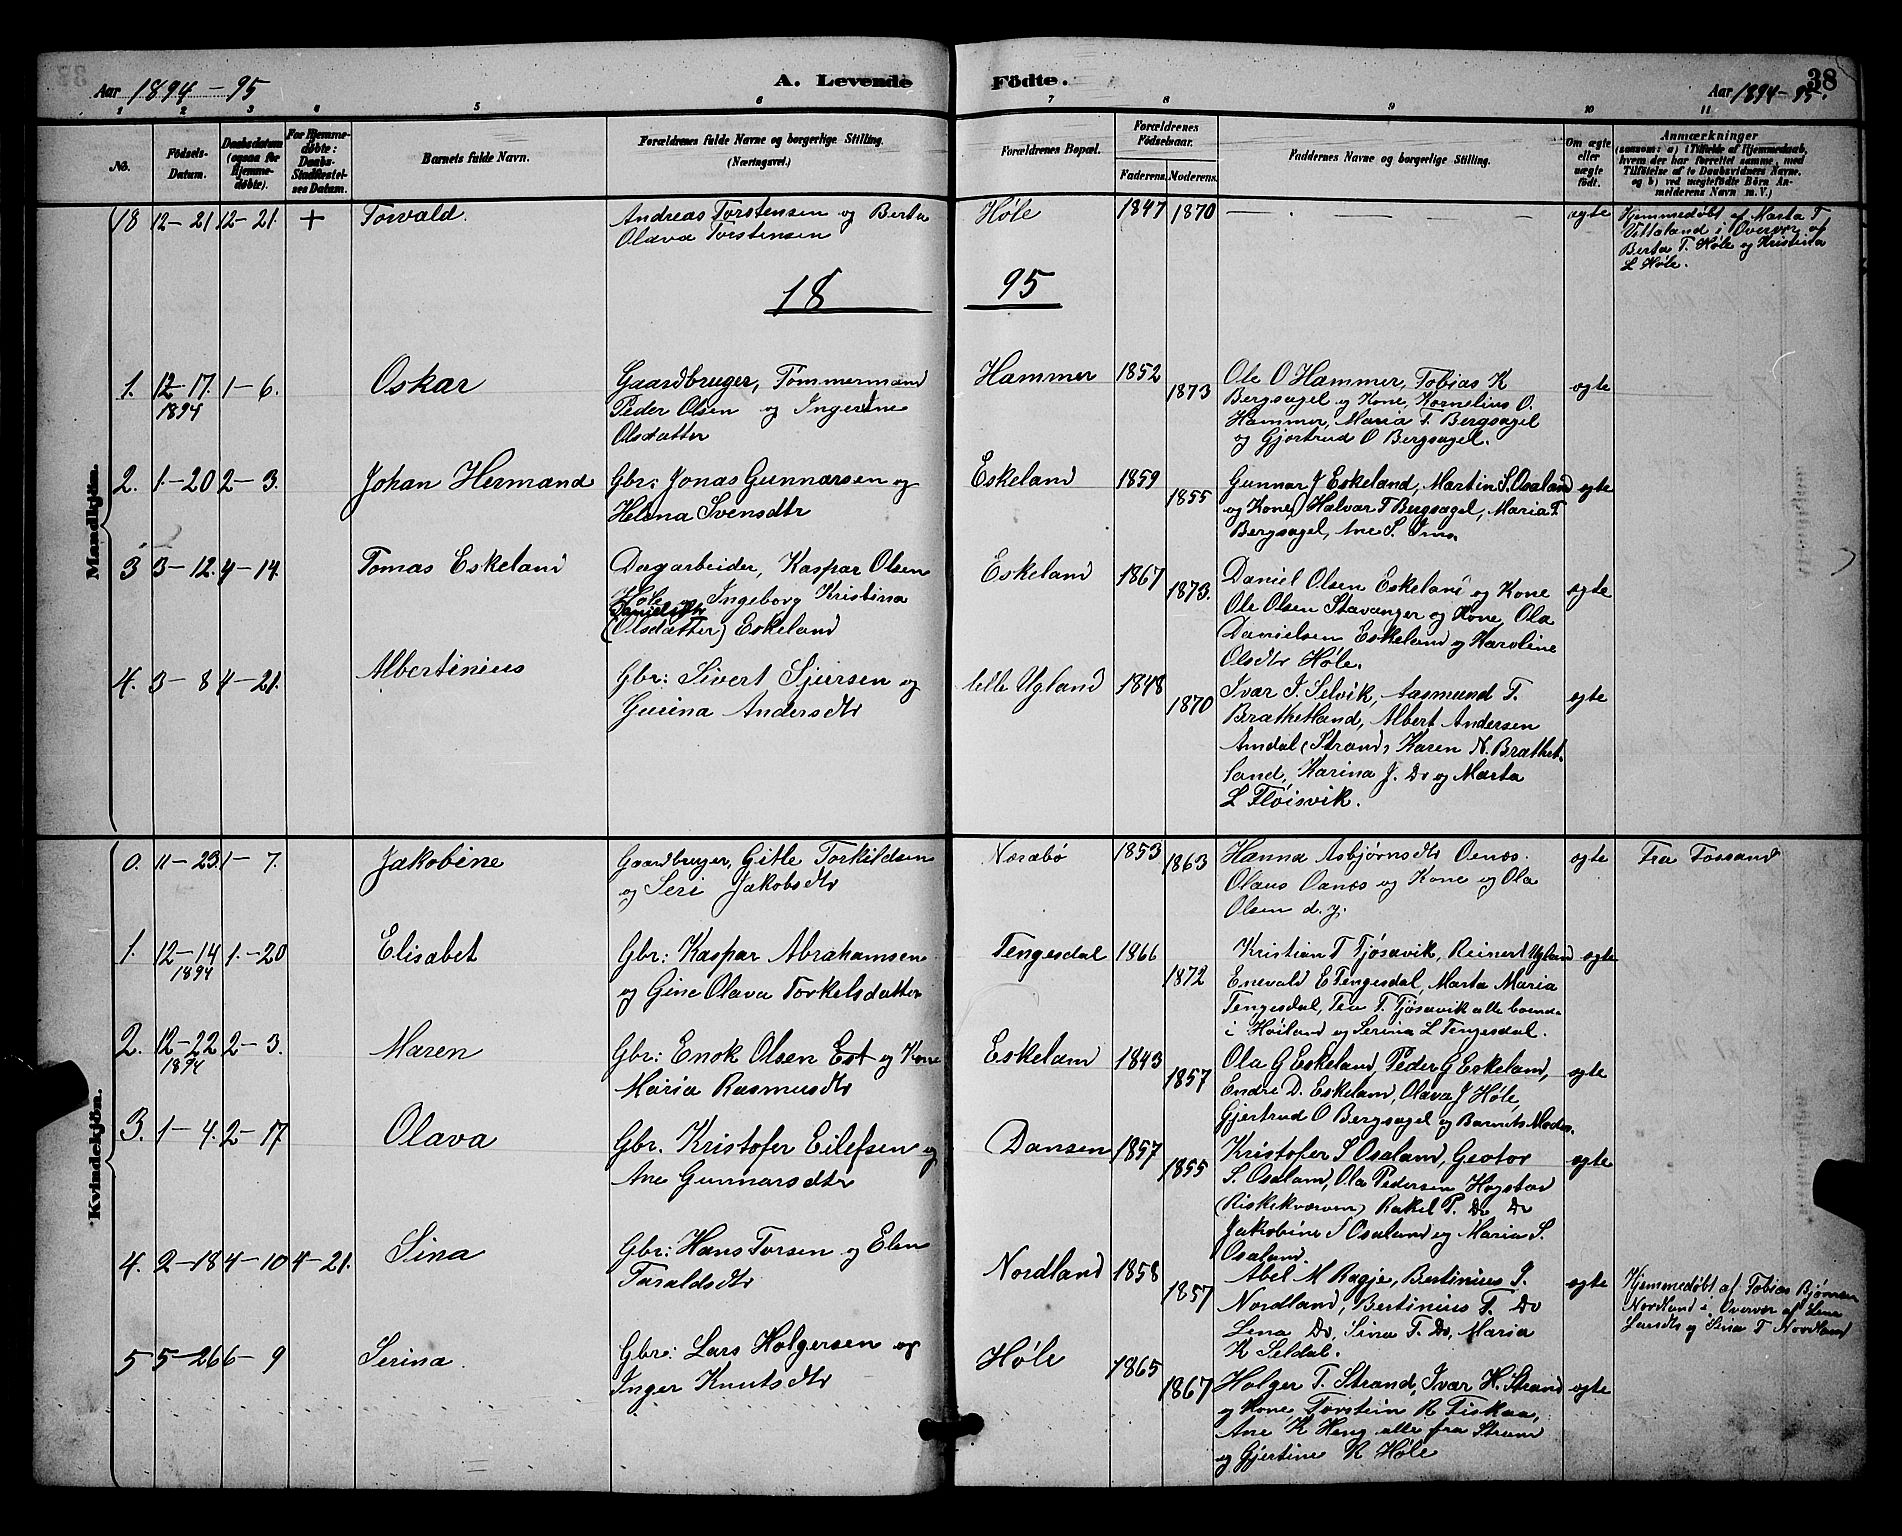 Aar 1894-95
A. Levende Födte.
Aar 1894-95.
38
1 2 3 4 5 6 7 8 9 10 11
No.
Födsels-Datum.
Daabsdatum (ogsaa for Hjemmedøbte).
For Hjemmedøbte: Daabs-Stadfæstelses Datum.
Barnets fulde Navn.
Forældrenes fulde Navne og borgerlige Stilling. (Næringsvei.)
Forældrenes Bopæl.
Forældrenes Födselsaar.
Faderens. Moderens.
Faddernes Navne og borgerlige Stilling.
Om ægte eller uægte født.
Anmærkninger
(saasom: a) i Tilfælde af Hjemmedaab, hvem der har forrettet samme, med Tilføielse af to Daabsvidners Navne, og b) ved uægtefødte Börn Anmelderens Navn m. V.)
Mandkjön.
18 12-21 12-21. + Torvald. Andreas Torstensen og Berta Høle 1847 1870 — . — — — ægte Hjemmedøbt af Marta T
Olava Torstensen
Vettaland i Overvær af
Berta T. Høle og Kristina
L Høle.
18 95
1. 12-17. 1-6. Oskar Gaardbruger, Tømmermand Hammer 1852 1873 Ole O Hammer, Tobias K ægte
1894 Peder Olsen og Ingertine Bergsagel og Kone, Kornelius O.
Olsdatter Hammer, Maria T. Bergsagel
og Gjertrud O Bergsagel.
2. 1-20 2-3. Johan Hermand Gbr: Jonas Gunnarsen og Eskeland 1859 1855 Gunnar J Eskeland, Martin S. Osaland ægte
Helena Svensdtr og Kone, Halvar T Bergsagel, Maria T
Bergsagel, Ane S.
3 3-12. 4-14. Tomas Eskeland Dagarbeider, Kaspar Olsen Eskeland 1867 1873. Daniel Olsen Eskeland og Kone ægte
Høle og Ingeborg Kristina Ole Olsen Stavanger og Kone, Ola
Danielsdtr
(Olsdatter) Eskeland Danielsen Eskeland og Karoline
Olsdtr Høle.
4. 3-8 4-21. Albertinius Gbr: Sivert Sjursen og lille Ugland 1848 1870 Ivar I. Selvik, Aasmund T. ægte
Gurina Andersdtr Brathetland, Albert Andersen
Amdal (Strand) Karen N. Brathet-
land, Karina J. Do og Marta
L Fløisvik.
Kvindekjön.
0. 11-23. 1-7. Jakobine Gaardbruger, Gitle Torkildsen Næsabø 1853 1863 Hanna Asbjørnsdtr Oenæs. ægte Fra Fossand
og Seri Jakobsdtr Olaus Oanæs og Kone og Ola
Olsen d. y.
1. 12-14 1-20 Elisabet Gbr: Kaspar Abrahamsen Tengesdal 1866 1872 Kristian T Tjøsavik, Reinert Ugland ægte
1894 og Gine Olava Torkelsdatter Enevald E Tengesdal, Marta Maria
Tengesdal, Tea T. Tjøsavik alle boende
i Høiland og Serina L Tengesdal.
2. 12-22 2-3. Maren Gbr: Enok Olsen Est og Kone Eskeland 1843 1857 Ola G Eskeland, Peder G Eskeland, ægte
1894 Maria Rasmusdtr Endre D. Eskeland, Olava J Høle,
Gjertrud O Bergsagel og Barnets Moder.
3. 1-4. 2-17 Olava Gbr. Kristofer Eilefsen og Dansen 1857 1855 Kristofer S Osaland, Geotor ægte
Ane Gunnarsdtr S. Osaland, Ola Pedersen Hogstad
(Riskekværven) Rakel P. Do Do
Jakobine S Osaland og Maria S.
Osaland.
4. 2-18 4-10 4-21. Sina Gbr: Hans Torsen og Elen Nordland 1858 1857 Abel M Ragje, Bertinius P. ægte Hjemmedøbt af Tobias Bjørnsen
Taraldsdtr Nordland, Bertinius T. Do Nordland i Overvær af Lena
Lena Do, Sina T. Do, Maria Larsdtr og Sina T Nordland
K Seldal.
5 5-26 6-9 Serina. Gbr: Lars Holgersen og Høle 1865 1867 Holger T. Strand, Ivar H. Strand ægte
Inger Knutsdtr og Kone Torstein R. Fiskaa,
Ane K Heng alle fra Strand
og Gjertine K Høle